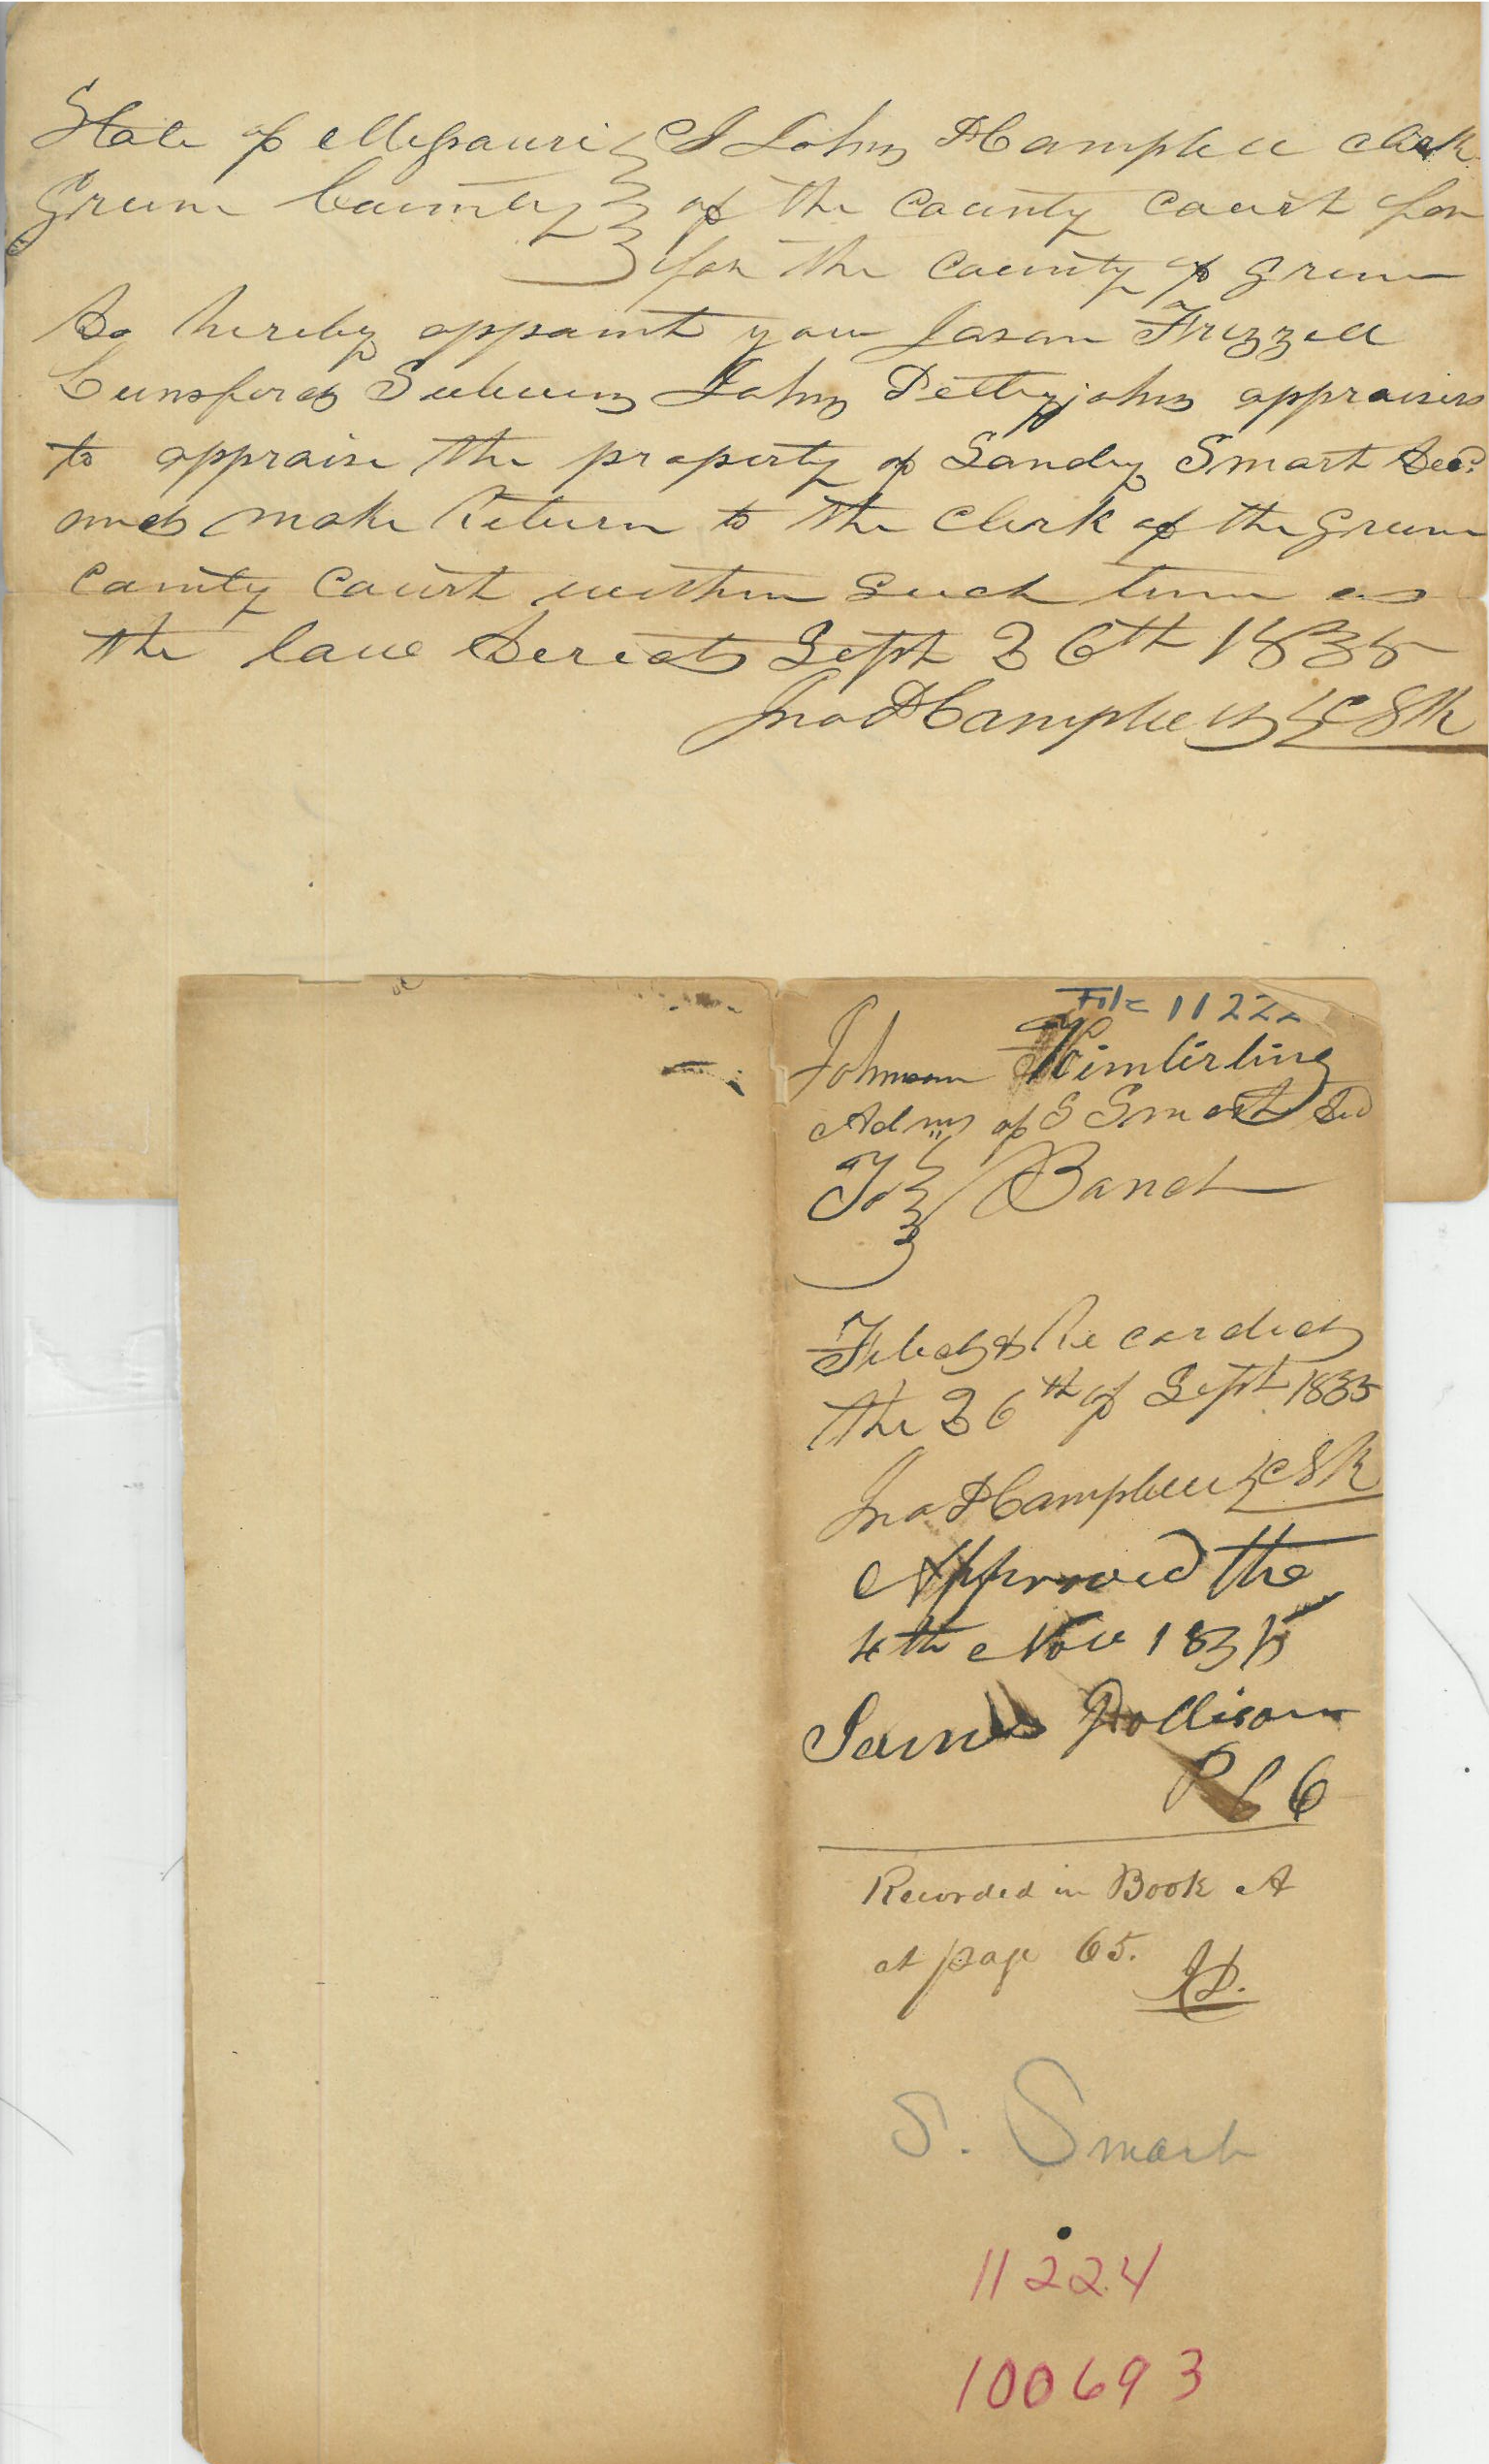 State of Missouri } I John D Campbell clerk
Green County } of the county court for
} for the county of Green
Do hereby appoint you Jason Frizzell
Lunsford John Pettyjohn appraisers
to appraise the property of Sandy Smart Decd.
and make Return to the Clerk of the Green
county court within such time as
the law Directs Sept 26th 1835
Jno D Campbell } Clk
File 11222
Johnson Kimberling
Admr of S Smart Decd
To } Bond
Filed & Recorded
the 26th of Sept 1835
Jno D Campbell } Clk
Approved the
4th Nov 1835
James Dollison
P C C
Recorded in Book A
at page 65. JD.
S. Smart
11224
100693